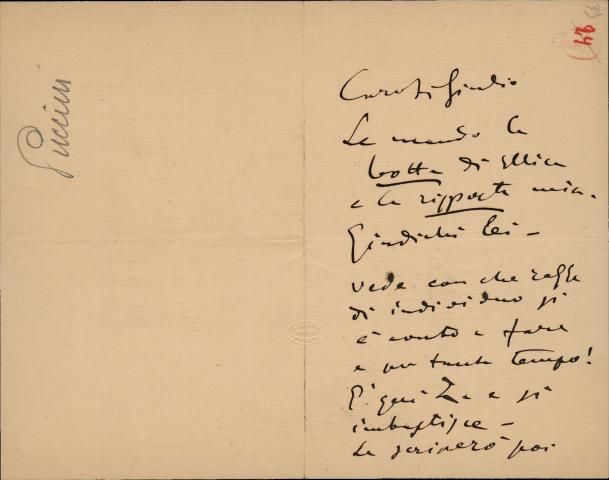 Puccini
Caro Sig Giulio
Le mando la
botta di Illica
e la risposta mia.
Giudichi lei –
vede con che razza
di individuo si
è avuto a fare
e per tanto tempo!
È qui Za e si
imbastisce –
Le scriverò poi